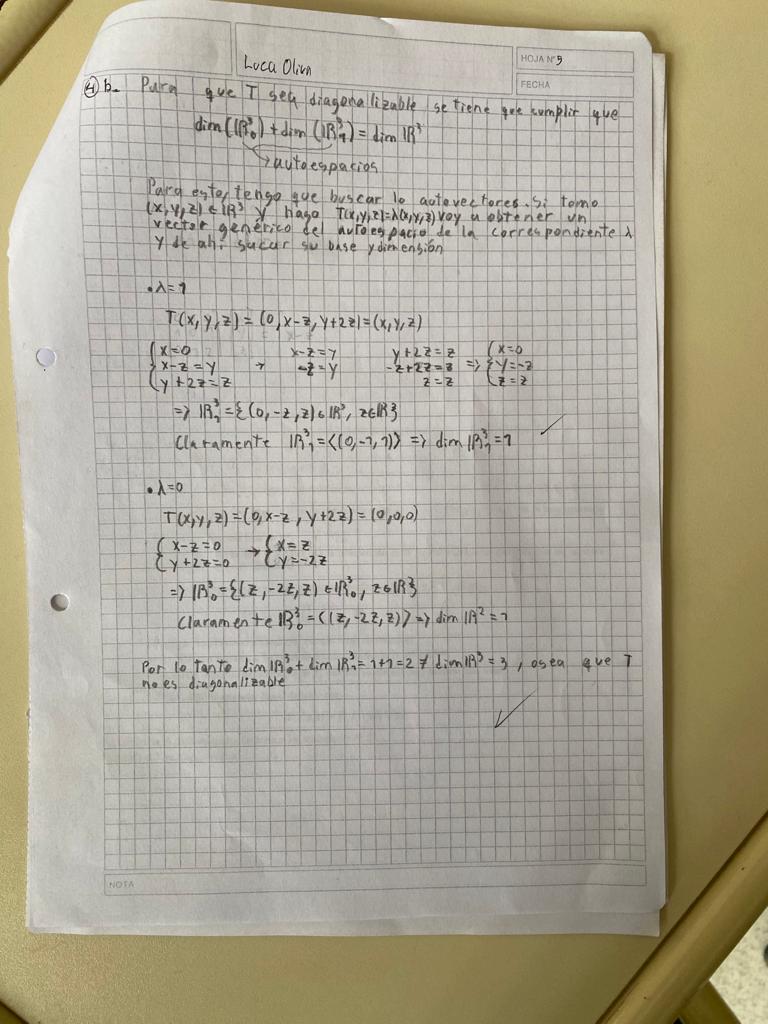 Luca Oliva
HOJA N° 5
FECHA
④ b- Para que T sea diagonalizable se tiene que cumplir que
dim(ℝ³₀) + dim(ℝ³₁) = dim ℝ³
→ autoespacios
Para esto, tengo que buscar lo autovectores. Si tomo
(x,y,z) ∈ ℝ³ y hago T(x,y,z)=λ(x,y,z) voy a obtener un
vector genérico del autoespacio de la correspondiente λ
y de ahí sacar su base y dimensión
• λ=1
T(x,y,z) = (0, x-z, y+2z) = (x,y,z)
{ x=0 x-z=y y+2z=z { x=0
{ x-z=y → -z=y -z+2z=z ⇒ { y=-z
{ y+2z=z z=z { z=z
⇒ ℝ³₁ = {(0,-z,z) ∈ ℝ³, z∈ℝ}
Claramente ℝ³₁ = ⟨(0,-1,1)⟩ ⇒ dim ℝ³₁ = 1
• λ=0
T(x,y,z) = (0, x-z, y+2z) = (0,0,0)
{ x-z=0 → { x=z
{ y+2z=0 { y=-2z
⇒ ℝ³₀ = {(z,-2z,z) ∈ ℝ³₀, z∈ℝ}
Claramente ℝ³₀ = ⟨(z,-2z,z)⟩ ⇒ dim ℝ² = 1
Por lo tanto dim ℝ³₀ + dim ℝ³₁ = 1+1 = 2 ≠ dim ℝ³ = 3, osea que T
no es diagonalizable
NOTA